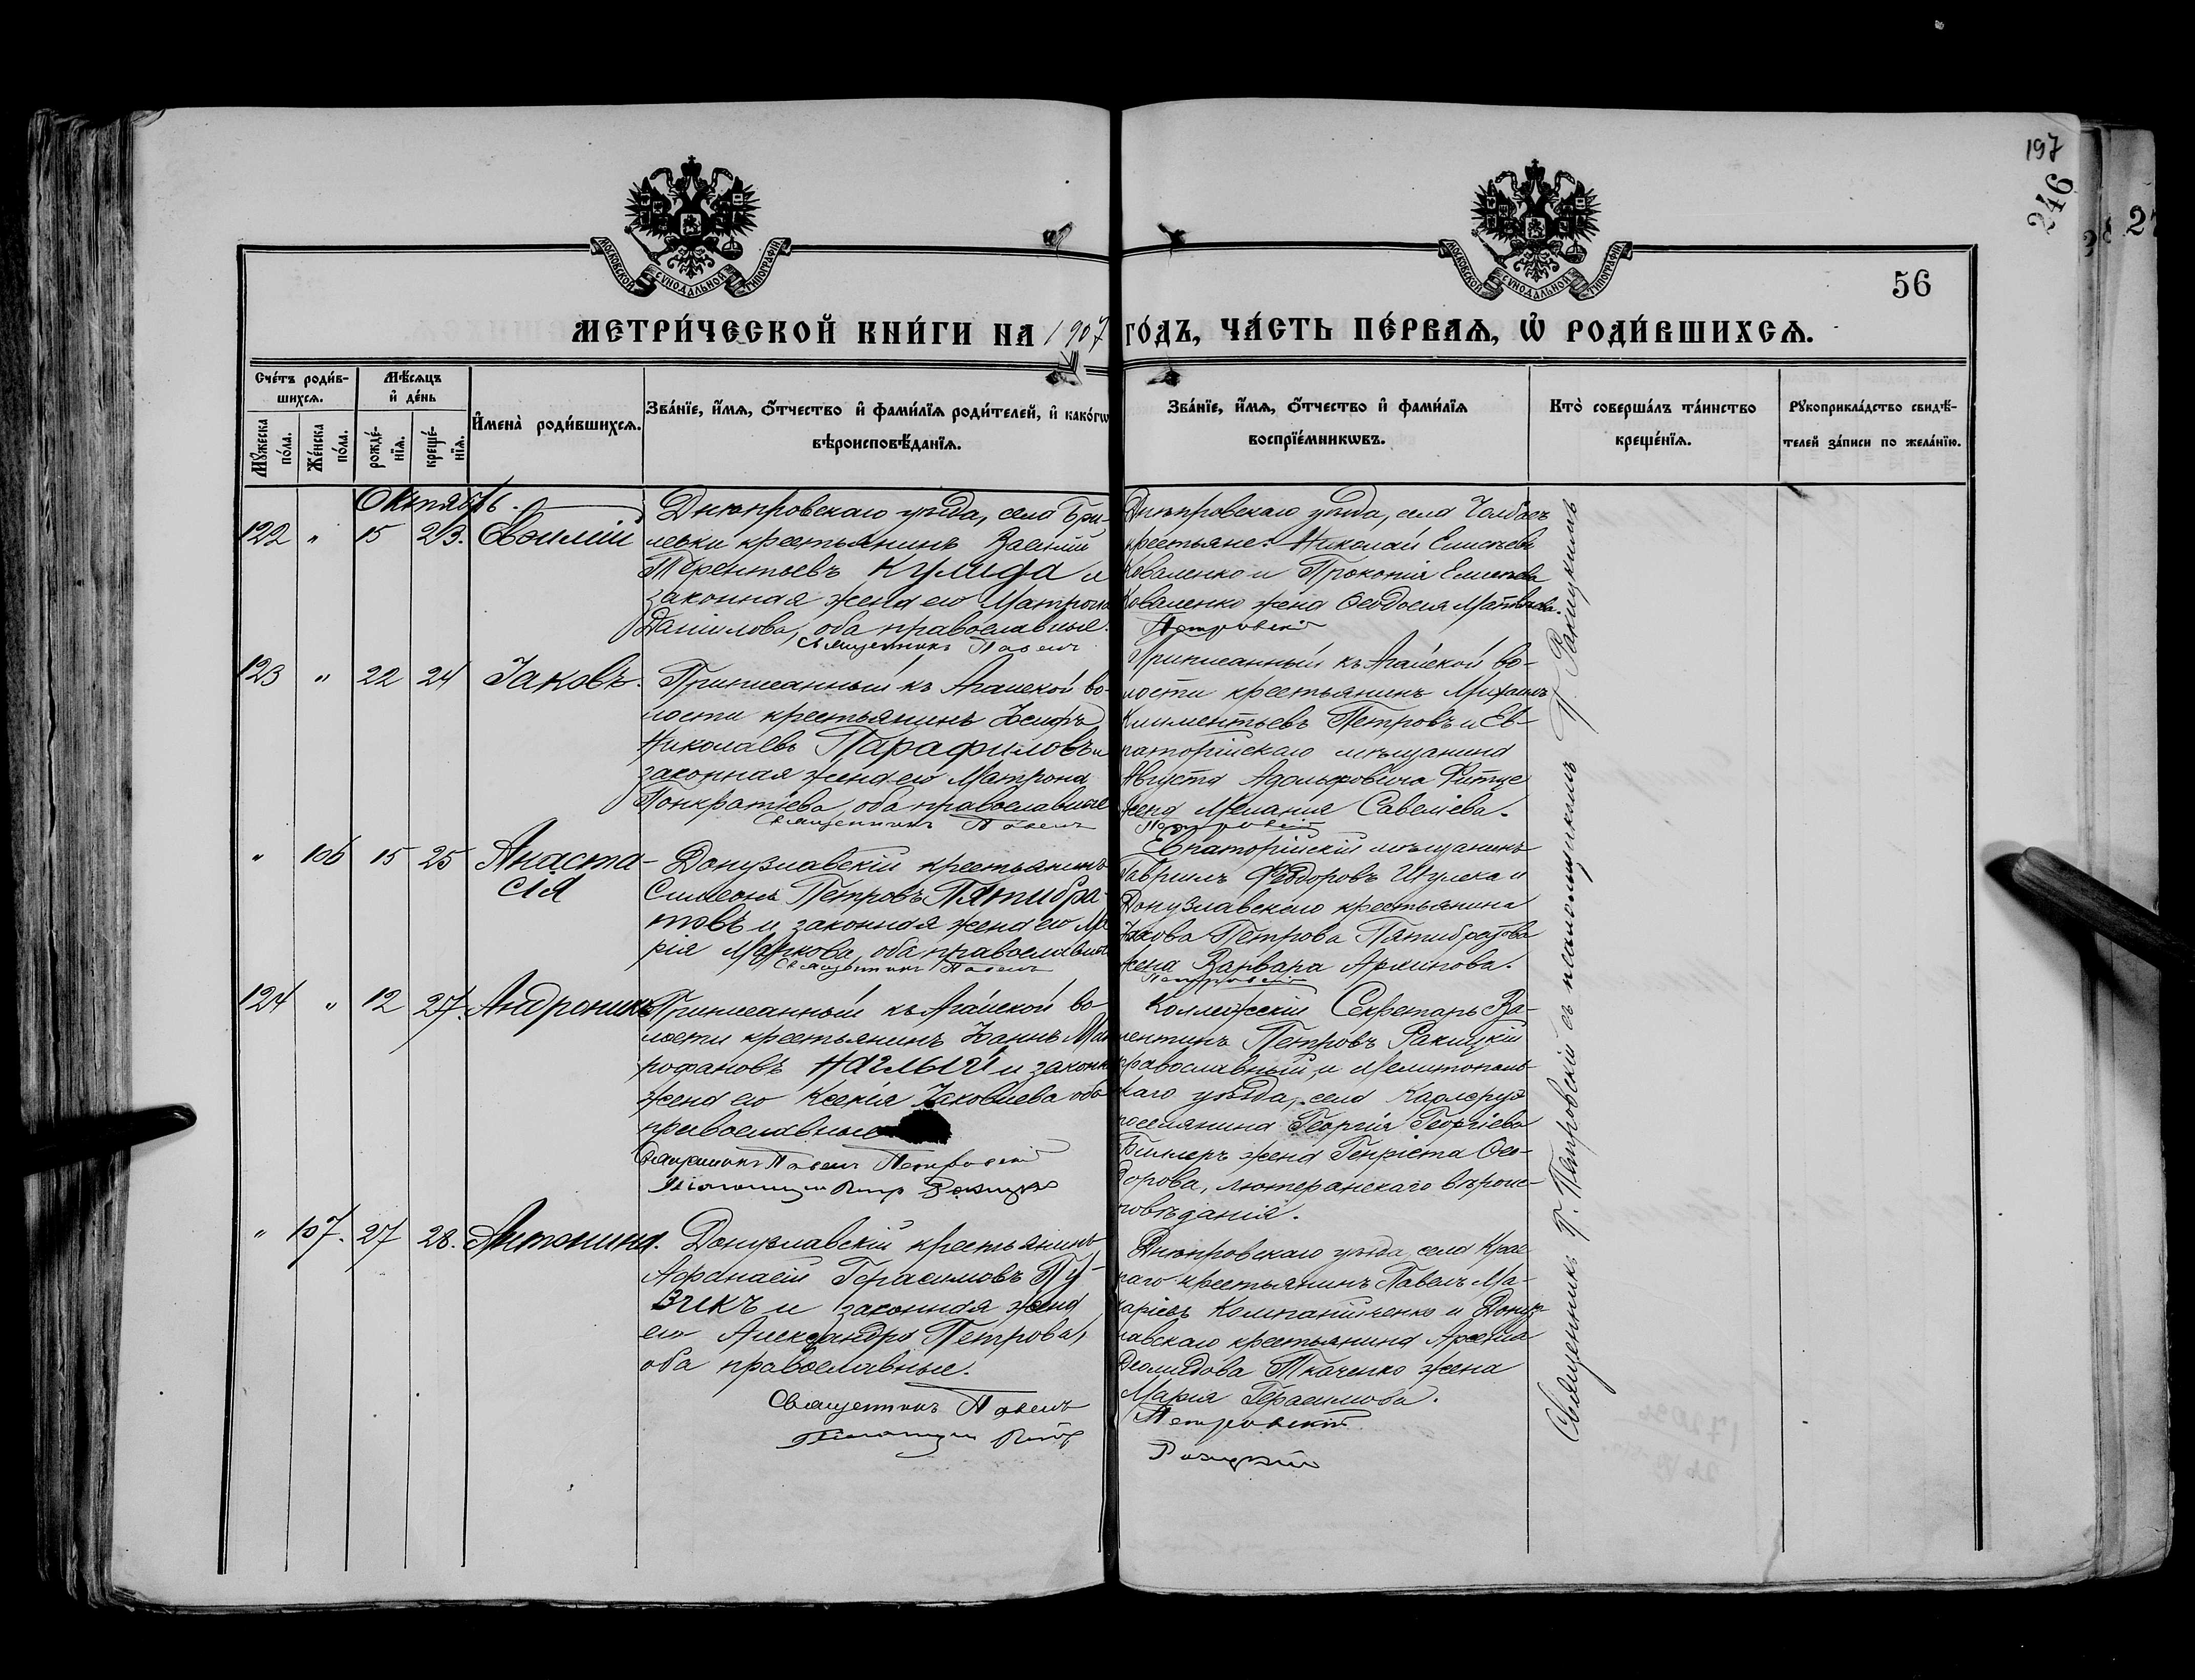 197
246
56
МОСКОВСКОЙ СѴНОДАЛЬНОЙ ТИПОГРАФІИ
МОСКОВСКОЙ СѴНОДАЛЬНОЙ ТИПОГРАФІИ
МЕТРИ́ЧЕСКОЙ КНИ́ГИ НА 1907 ГО́ДЪ, ЧА́СТЬ ПЕ́РВАѦ, Ѡ҆ РОДИ́ВШИХСѦ.
Сче́тъ роди́в-
шихсѧ.
Мꙋ́жеска по́ла.
Же́нска по́ла.
Мѣ́сѧцъ и҆ де́нь
рожде́-нїѧ.
креще́-нїѧ.
И҆мена̀ роди́вшихсѧ.
Зва́нїе, и҆́мѧ, ѻ҆́тчество и҆ фами́лїѧ роди́телей, и҆ како́гѡ
вѣроисповѣ́данїѧ.
Зва́нїе, и҆́мѧ, ѻ҆́тчество и҆ фами́лїѧ
воспрїе́мникѡвъ.
Кто̀ соверша́лъ та́инство
креще́нїѧ.
Рꙋкоприкла́дство свидѣ́-
телей за́писи по жела́нїю.
Октябрь.
122 " 15 23.
Днѣпровскаго уѣзда, села Бри-
левки крестьянинъ Василій
Терентьевъ Кулида и
законная жена его Матрона
Данилова, оба православные.
Священникъ Павелъ
Днѣпровскаго уѣзда, села Чолбасъ
крестьяне: Николай Елисѣевъ
Коваленко и Прокопія Елисѣева
Коваленко жена Ѳеодосія Матвѣева.
Петровскій
123 " 22 24 Іаковъ.
Приписанный къ Агайской во-
лости крестьянинъ Іосифъ
Николаевъ Парафиловъ и
законная жена его Матрона
Понкратіева, оба православные
Священникъ Павелъ
Приписанный къ Агайской во-
лости крестьянинъ Михаилъ
Климентьевъ Петровъ и Ев-
паторійскаго мѣщанина
Августа Адольфовича Фитце
жена Мелания Савеліева.
Петровскій
" 106 15 25 Анаста-
сія
Донузлавскій крестьянинъ
Симеонъ Петровъ Пятибра-
товъ и законная жена его Ма
рія Маркова, оба православные
Священникъ Павелъ
Евпаторійскій мѣщанинъ
Гавріилъ Ѳеодоровъ Шулека и
Донузлавскаго крестьянина
Іакова Петрова Пятибратова
жена Варвара Архипова.
Петровскій
124 " 12 27. Андроникъ
Приписанный къ Агайской во-
лости крестьянинъ Іоаннъ Мит
рофановъ Наглый и законн
жена его Ксенія Іаковлева оба
православные
Священникъ Павелъ Петровскій
Псаломщикъ Петр Ракицкій
Коллежскій Секретарь Ва-
лентинъ Петровъ Ракицкій
православный, и Мелитополь-
скаго уѣзда, села Карлсруэ
поселянина Георгія Георгіева
Биллеръ жена Генріета Ѳео-
дорова, лютеранскаго вѣроис-
повѣданія.
" 107. 27 28. Антонина.
Донузлавскій крестьянинъ
Афанасій Герасимовъ Пу-
зикъ и законная жена
его Александра Петрова,
оба православные.
Священникъ Павелъ
Псаломщикъ Петр
Днѣпровскаго уѣзда села Крас
наго крестьянинъ Павелъ Ма-
каріевъ Компанійченко и Донуз-
лавскаго крестьянина Арсенія
Діомидова Ткаченко жена
Марія Герасимова.
Петровскій
Ракицкій
Священникъ П. Петровскій съ псаломщикомъ П. Ракицкимъ